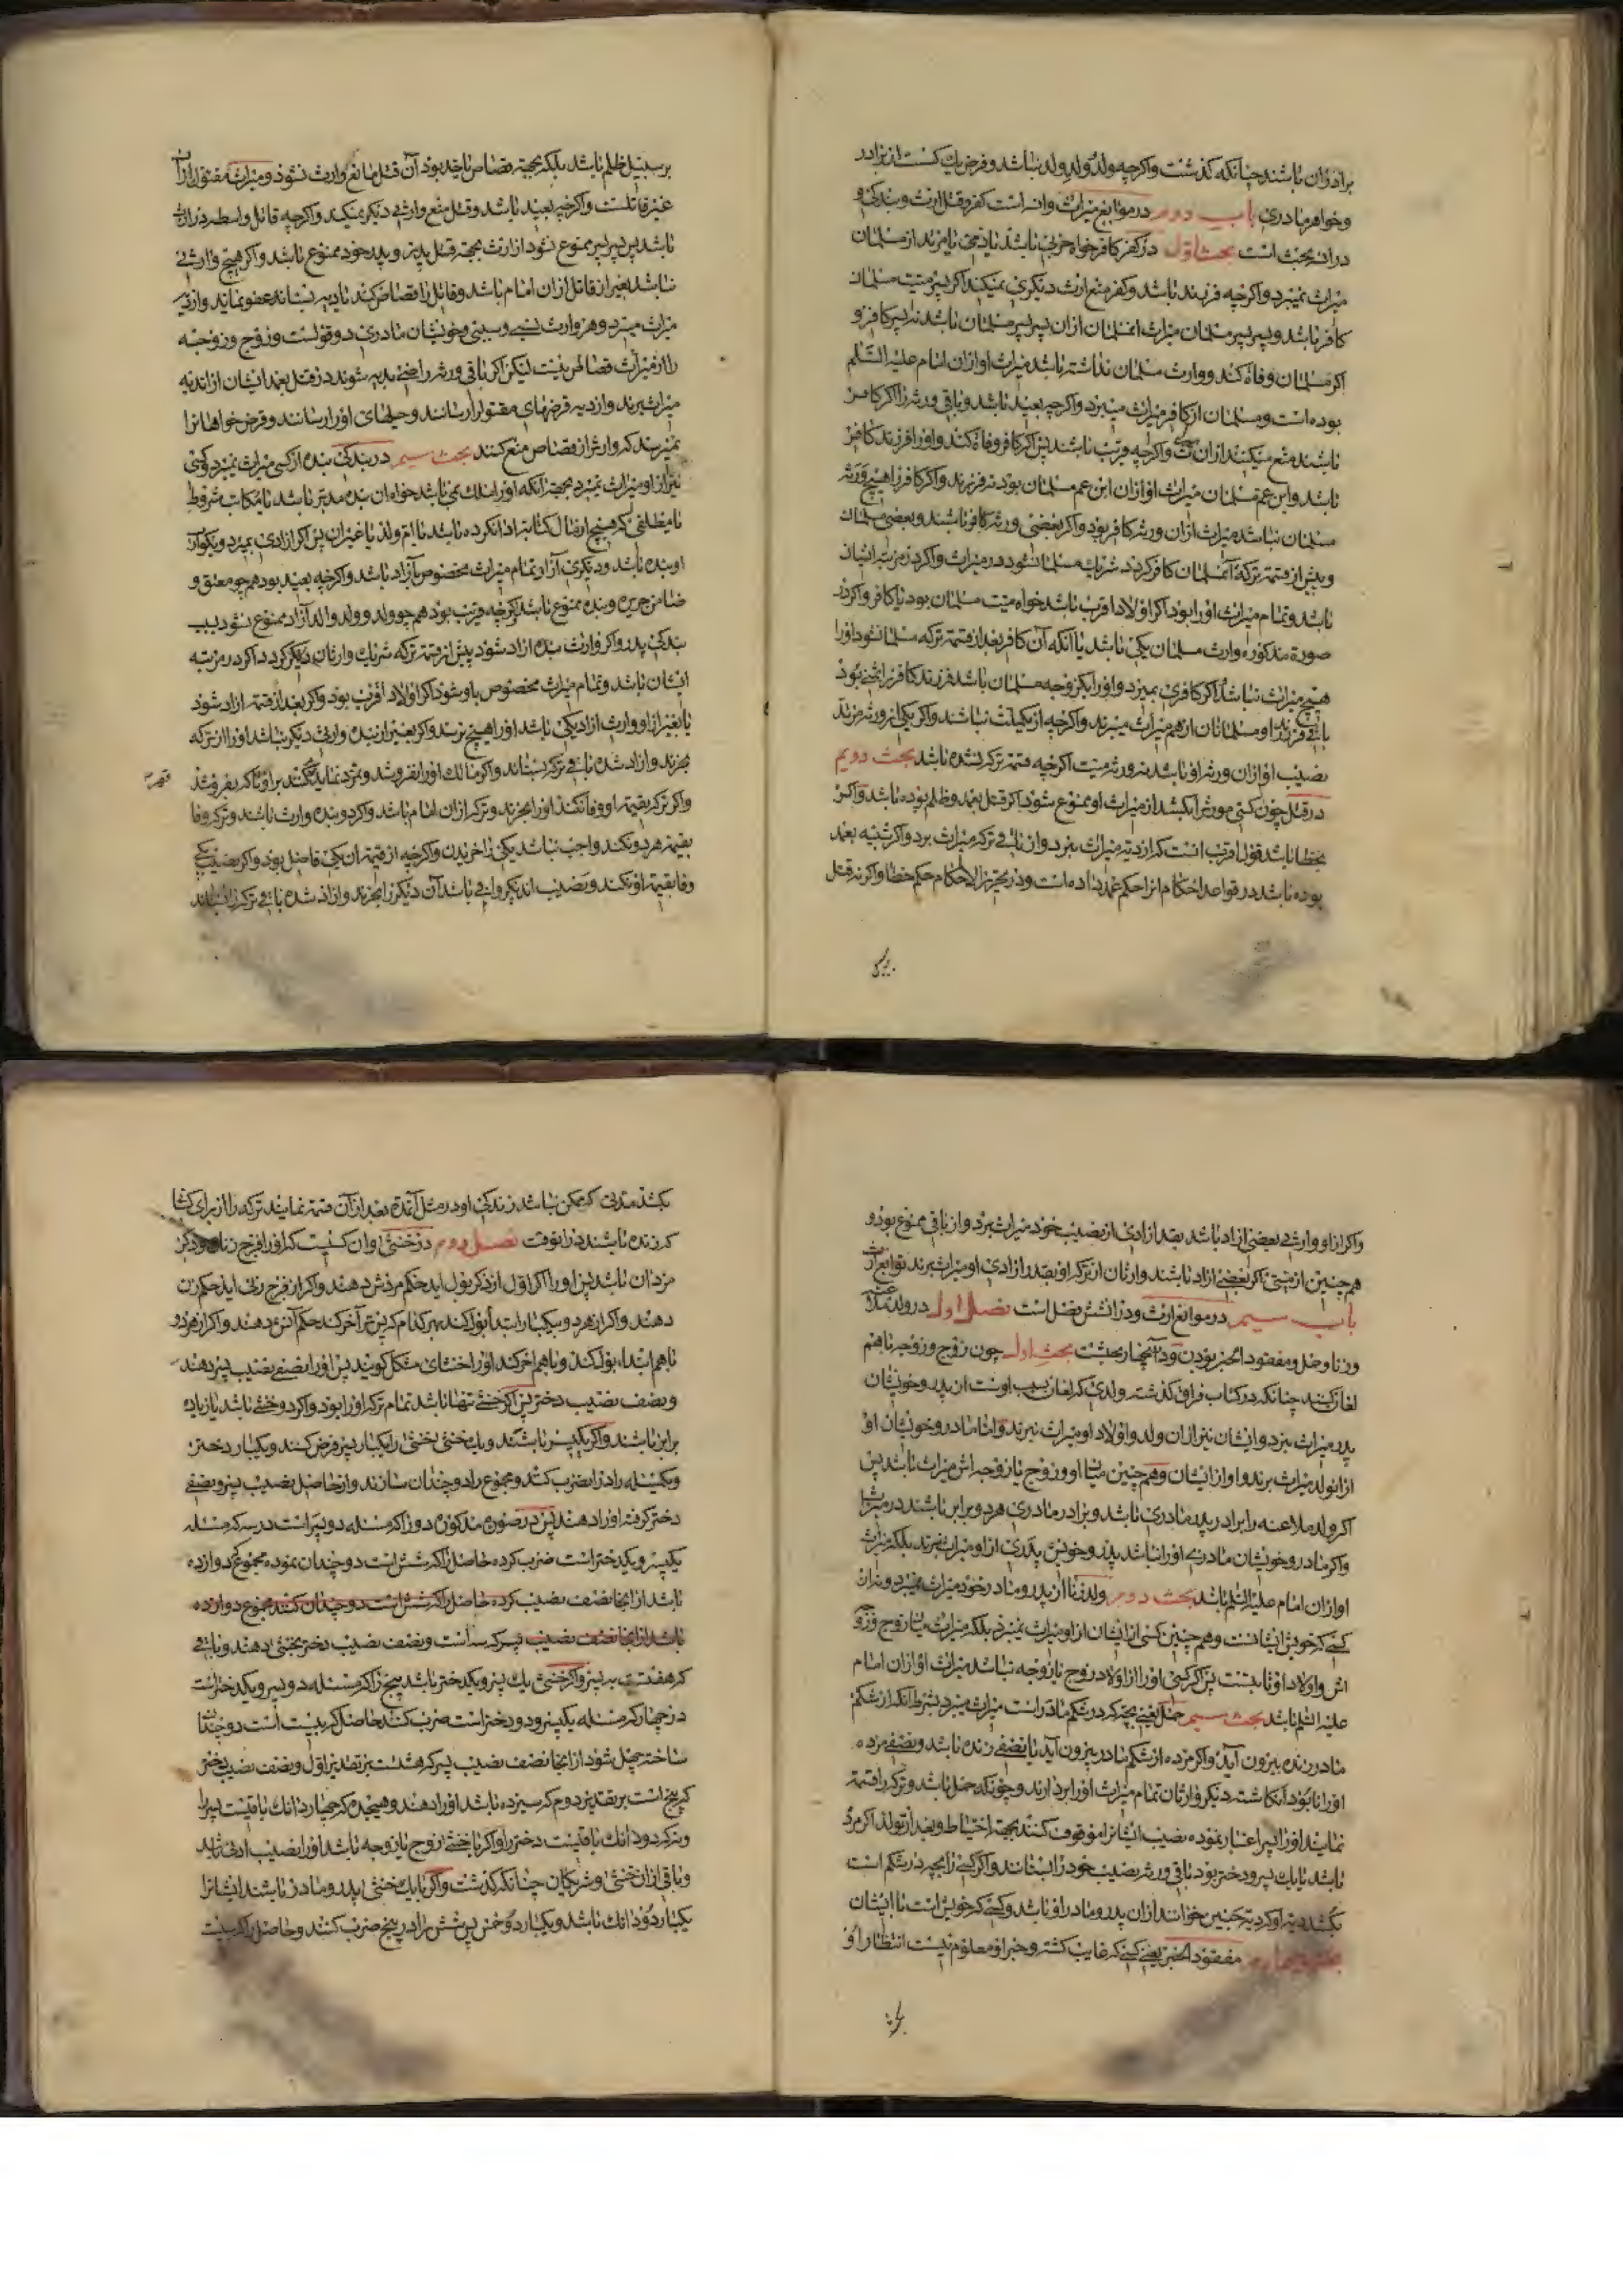 برادران باشند چنانکه گذشت واکرچه ولد ولد ولد نباشد وفرض یك کست از برادر
وخواهر مادری باب دوم در موانع میراث وان سه است کفر وقتل ارث وبندکی و
دران بحث است بحث اول در کفر کافر خواه حربی باشد یا ذمی یا مرتد از مسلمان
میراث نمیبرد واکرچه فرزند باشد وکفر منع ارث دیکری نمیکند اکر پسر میت مسلمان
کافر باشد وپسر پسر مسلمان میراث انمسلمان ازان پسر پسر مسلمان باشد نه پسر کافر و
اکر مسلمان وفاة کند ووارث مسلمان نداشته باشد میراث او ازان امام علیه السلم
بوده است ومسلمان از کافر میراث میبرد واکرچه بعید باشد وباقی ورثه را اکر کافر
باشند منع میکند ازان ارث واکرچه قریب باشند پس اکر کافر وفاة کند واورا فرزند کافر
باشد وابن عم مسلمان میراث او ازان ابن عم مسلمان بود نه فرزند واکر کافر را هیچ ورثه
مسلمان نباشد میراث ازان ورثه کافر بود واکر بعضی ورثه کافر باشند وبعضی مسلمان
وپیش از قسمة ترکه آنمسلمان کافر کردد شریك مسلمانان شود در میراث واکر در مرتبه ایشان
باشد وتمام میراث اورا بود اکر اولاد اقرب باشد خواه میت مسلمان بود یا کافر واکر در
صورة مذکوره وارث مسلمان یکی باشد یا آنکه آن کافر بعد از قسمة ترکه مسلمان شود اورا
هیچ میراث نباشد اکر کافری بمیرد واورا یکزوجه مسلمان باشد فرزند کافر را ثمنی بود
باقی فرزند او مسلمانان از هم میراث میبرند واکرچه از یکملت نباشند واکر یکی از ورثه مرتد
نصیب او ازان ورثه او باشد نه ورثه میت اکرچه قسمة ترکه نشده باشد بحث دویم
در قتل چون کسی مورث را بکشد از میراث او ممنوع شود اکر قتل بعمد وظلم بوده باشد واکر
بخطا باشد قول اقرب انست که از دیه میراث نبرد واز باقی ترکه میراث برد واکر شبیه بعمد
بوده باشد در قواعد احکام انرا حکم عمد داده است ودر تحریر الاحکام حکم خطا واکر نه قتل
بر سبیل ظلم باشد بلکه بجهة قصاص یا حد بود آن قتل مانع وارث نشود ومیراث مقتول ازان
غیر قاتلست واکرچه بعید باشد وقتل منع وارثی دیکر نمیکند واکرچه قاتل واسطه دران
باشد پس پسر پسر ممنوع نشود از ارث بجهة قتل پدر وپدر خود ممنوع باشد واکر هیچ وارثی
نباشد بغیر از قاتل ازان امام باشد وقاتل را قصاص کند یا دیه بستاند عفو نماید واز دیه
میراث میبرد وهر وارث نسبی وسببی وخویشان مادری دو قولست وزوج وزوجه
را از میراث قصاص نیست لیکن اکر باقی ورثه راضی بدیه شوند در قتل بعمد ایشان از اندیه
میراث برند واز دیه قرضهای مقتول را رسانند وصیتهای اورا رسانند وقرض خواهانرا
نمیرسد که وارث را از قصاص منع کنند بحث سیم در بندکی بنده از کسی میراث نمیبرد وکسی
نیز از او میراث نمیبرد بجهة آنکه اورا ملك نمی باشد خواه ان بنده مدبر باشد یا مکاتب مشروط
یا مطلقی که هیچ از مال کتابة ادا نکرده باشد یا ام ولد یا غیر ان پس اکر ازادی بمیرد ویکوارث
او بنده باشد ودیکری آزاد تمام میراث مخصوص بآزاد باشد واکرچه بعید بود همچو معتق و
ضامن جریره وبنده ممنوع باشد واکرچه قریب بود همچو ولد وولد والد آزاد ممنوع نشود بسبب
بندکی پدر واکر وارث بنده ازاد شود پیش از قسمة ترکه شریك وارثان دیکر کردد اکر در مرتبه
ایشان باشد وتمام میراث مخصوص باو شود اکر اولاد اقرب بود واکر بعد از قسمة ازاد شود
یا بغیر از او وارث ازاد یکی باشد اورا هیچ نرسد واکر بغیر از بنده وارثی دیکر نباشد اورا از ترکه
بخرند وازاد شده باقی ترکه بستاند واکر مالك اورا نفروشد وتمرد نماید
واکر ترکه بقیمة او وفا نکند اورا نخرند وترکه ازان امام باشد واکر دو بنده وارث باشند وترکه وفا
بقیمة هر دو نکند واجب نباشد یکی را خریدن واکرچه از قیمة ان یکی فاضل بود واکر نصیب یکی
وفا بقیمة او نکند ونصیب اندیکر وافی باشد آن دیکر را بخرند وازاد شده باقی ترکه را بستاند
واکر از او وارثی بعضی ازاد باشد بقدر ازادی از نصیب خود میراث برد واز باقی ممنوع بود و
همچنین از میتی اکر بعضی ازاد باشند وارثان از ترکه او بقدر ازادی او میراث برند توابع ارث
باب سیم در موانع ارث ودرانشش فصل است فصل اول در ولد ملاعنه
وزنا وحمل ومفقود الخبر بودن ودر آنچهار بحثست بحث اول چون زوج وزوجه باهم
لعان کنند چنانکه در کتاب فراق کذشت ولدی که لعان بسبب اوست از پدر وخویشان
پدر میراث نبرد وایشان نیز ازان ولد واولاد او میراث نبرند واما مادر وخویشان او
از انولد میراث برند واو از ایشان وهمچنین میان او وزوج یا زوجه اش میراث باشد پس
اکر ولد ملاعنه را برادر پدر مادری باشد وبرادر مادری هر دو برابر باشند در میراث
واکر مادر وخویشان مادری اورا نباشد پدر وخویش پدری از او میراث نبرند بلکه میراث
او ازان امام علیه السلم باشد بحث دوم ولد زنا از پدر ومادر خود میراث نمیبرد ونه ازان
کسی که خویش ایشانست وهمچنین کسی از ایشان از او میراث نمیبرد بلکه میراث میان زوج وزوجه
اش واولاد او ثابتست پس اکر کسی اورا از اولاد زوج یا زوجه نباشد میراث او ازان امام
علیه السلم باشد بحث سیم حمل یعنی بچه که در شکم مادر است میراث میبرد بشرط آنکه از شکم
مادر زنده بیرون آید واکر مرده از شکم مادر بیرون آید یا نصفی زنده باشد ونصفی مرده
اورا نابود انکاشته دیکر وارثان تمام میراث اورا بردارند وچونکه حمل باشد وترکه را قسمة
نمایند اورا دو پسر اعتبار نموده نصیب ایشانرا موقوف کنند بجهة احتیاط وبعد از تولد اکر مرد
باشد یا یك پسر ودختر بود باقی ورثه نصیب خود را بستانند واکر کسی را بچه در شکم است
بکشد دیه او که دیه جنین خوانند ازان پدر ومادر او باشد وکسی که خویش است با ایشان
بحث چهارم مفقود الخبر یعنی کسی که غایب کشته وخبر او معلوم نیست انتظار او
بکشد مدتی که ممکن نباشد زندکی او در مثل آنمدة بعد ازان قسمة نمایند ترکه را از برای کسانی
که زنده باشند در انوقت فصل دوم در خنثی وان کسیست که اورا فرج زنان وذکر
مردان باشد پس اورا اکر اول از ذکر بول اید حکم مردش دهند واکر از فرج زنی اید حکم زن
دهند واکر از هر دو بیکبار ابتدا بول کند بهر کدام که پستر آخر کند حکم آتش دهند واکر از هر دو
باهم ابتداء بول کند وباهم اخر کند اورا خنثای مشکل کویند پس اورا نصفی نصیب پسر دهند
ونصف نصیب دختر پس اکر خنثی تنها باشد تمام ترکه اورا بود واکر دو خنثی باشد یا زیاده
برابر باشند واکر یکپسر باشند ویك خنثی خنثی را یکبار پسر فرض کنند ویکبار دختر
ویکمسئله را در انضرب کنند ومجموع را دو چندان سازند واز حاصل نصیب پسر ونصفی
دختر کرفته اورا دهند پس در صورة مذکوره دو را که مسئله دو پسر است در سه که مسئله
یکپسر ویکدختر است ضرب کرده حاصل را که شش است دو چندان نموده مجموع دوازده
باشد از انجا نصف نصیب کرده حاصل را که شش است دو چندان کنند مجموع دوازده
باشد از انجا نصف نصیب پسر که سه است ونصف نصیب دختر بخنثی دهند وباقی
که هفتست به پسر واکر خنثی یك پسر ویکدختر باشد پنج را که مسئله دو پسر ویکدختر است
در چهار که مسئله یکپسر ودو دختر است ضرب کنند حاصل که بیست است دو چندان
ساخته چهل شود از انجا نصف نصیب پسر که هشت بر تقدیر اول ونصف نصیب دختر
که پنج است بر تقدیر دوم که سیزده باشد اورا دهند وهیجده که چهار دانك باقیست پسر را
ونه که دو دانك باقیست دختر را واکر با خنثی زوج یا زوجه باشد اورا نصیب ادنی باشد
وباقی ازان خنثی وشریکان چنانکه کذشت واکر با یك خنثی پدر ومادر باشند ایشانرا
یکبار دو دانك باشد ویکبار دو خمس پس شش را در پنج ضرب کنند وحاصل را که سیست